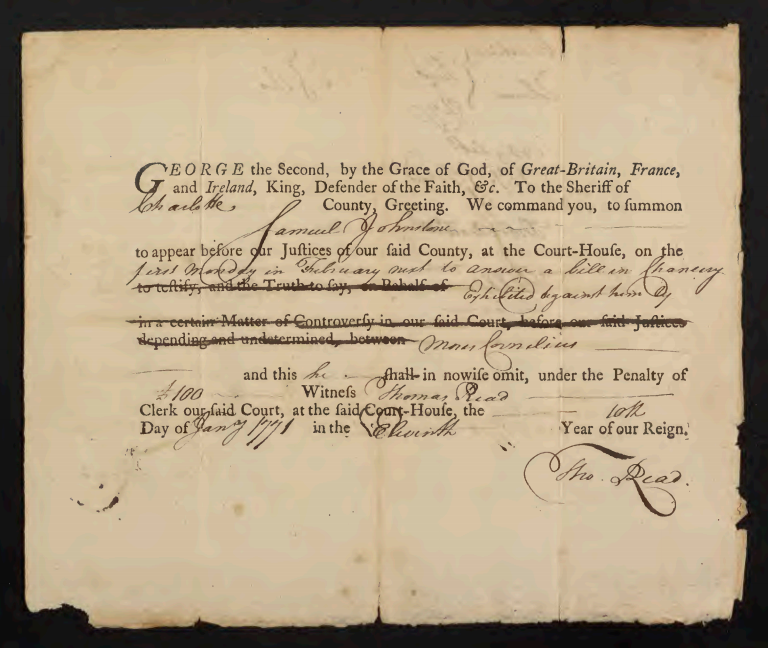 GEORGE the Second, by the Grace of God, of Great-Britain, France,
and Ireland, King, Defender of the Faith, &c. To the Sheriff of
Charlotte County, Greeting. We command you, to summon
Samuel Johnston
to appear before our Juſtices of our ſaid County, at the Court-Houſe, on the
first Monday in February next to answer a bill in Chancery
to teſtify, and the Truth to ſay, on Behalf of Exhibited against him by
in a certain Matter of Controverſy in our ſaid Court, before our ſaid Juſtices
depending and undetermined, between Moses Cornelius
and this he ſhall in nowiſe omit, under the Penalty of
£100 Witneſs Thomas Read
Clerk our ſaid Court, at the ſaid Court-Houſe, the 10th
Day of Jany 1771 in the Eleventh Year of our Reign.
Tho. Read.